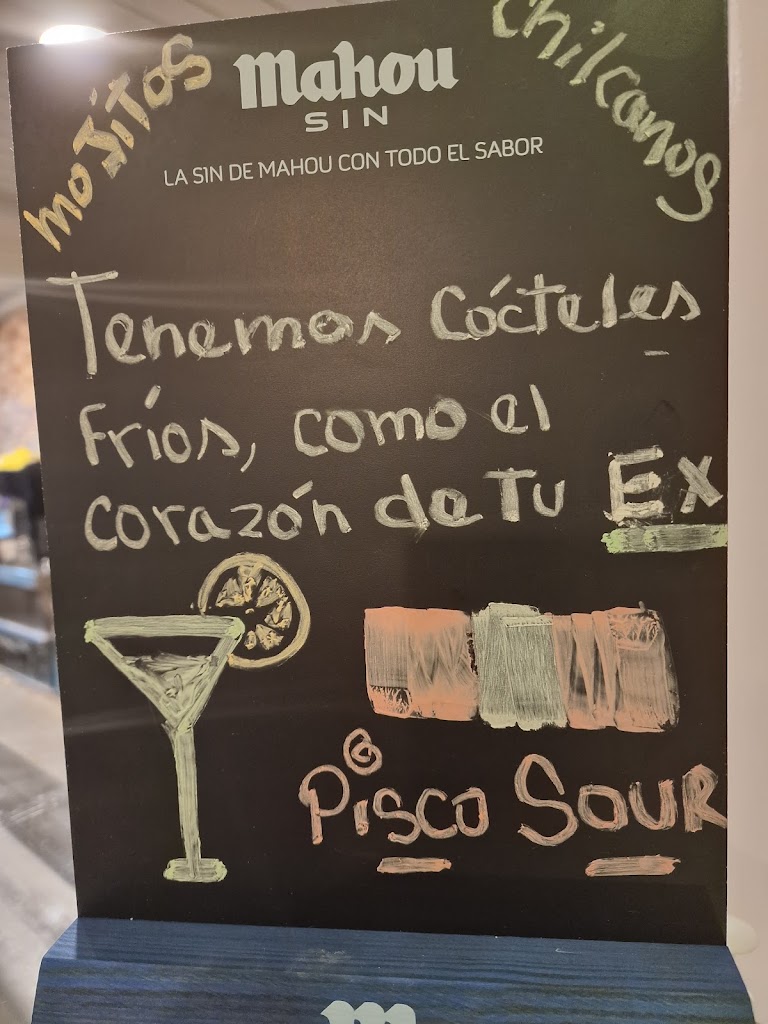 mojitos
Mahou
SIN
chilcanos
LA SIN DE MAHOU CON TODO EL SABOR
Tenemos Cócteles
fríos, como el
corazón de Tu Ex
Pisco Sour